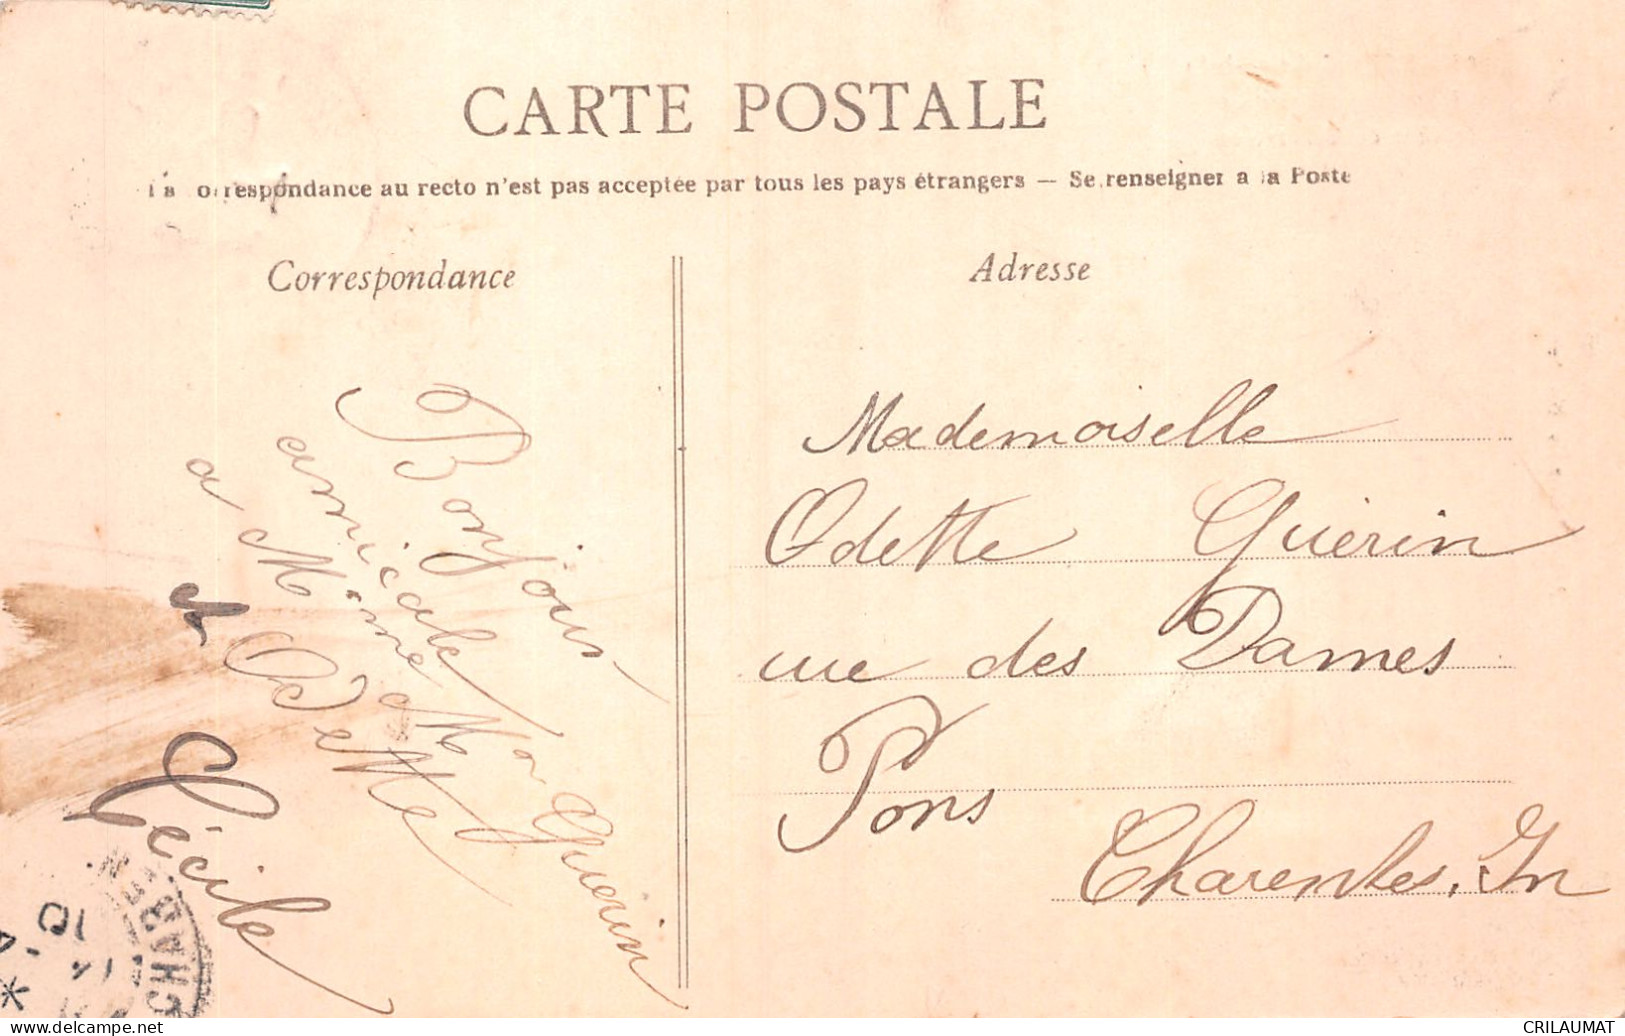 CARTE POSTALE
orrespondance au recto n'est pas acceptée par tous les pays étrangers — Se renseigner a la Poste
Correspondance
Adresse
Bonjour
amicale
a Mme Guérin
et Odette
Cécile
Mademoiselle
Odette Guérin
rue des Dames
Pons
Charentes. In
CHAREN
10
CRILAUMAT